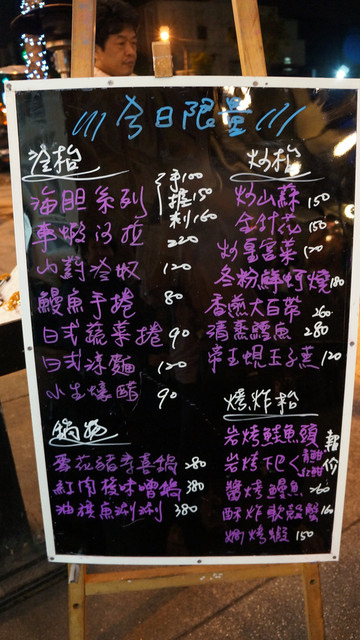 今日限量
冷枱
海胆系列 手100
推150
刺160
車蝦沙拉 220
山藥冷奴 120
鰻魚手捲 80
日式蔬菜捲 90
日式涼麵 120
小生燻醋 90
鍋物
雪花豬壽喜鍋 280
紅肉 味噌鍋 380
油旗魚涮涮 380
炒枱
炒山蘇 150
金針花 150
炒皇宮菜 120
冬粉鮮蚵燒 180
香煎大百帶 260
清蒸鱈魚 280
帝王蜆玉子蒸 120
燒炸枱
岩烤鮭魚頭 報价
岩烤下巴
醬烤鰻魚 260
酥炸軟殼蟹 160
烤蝦 150